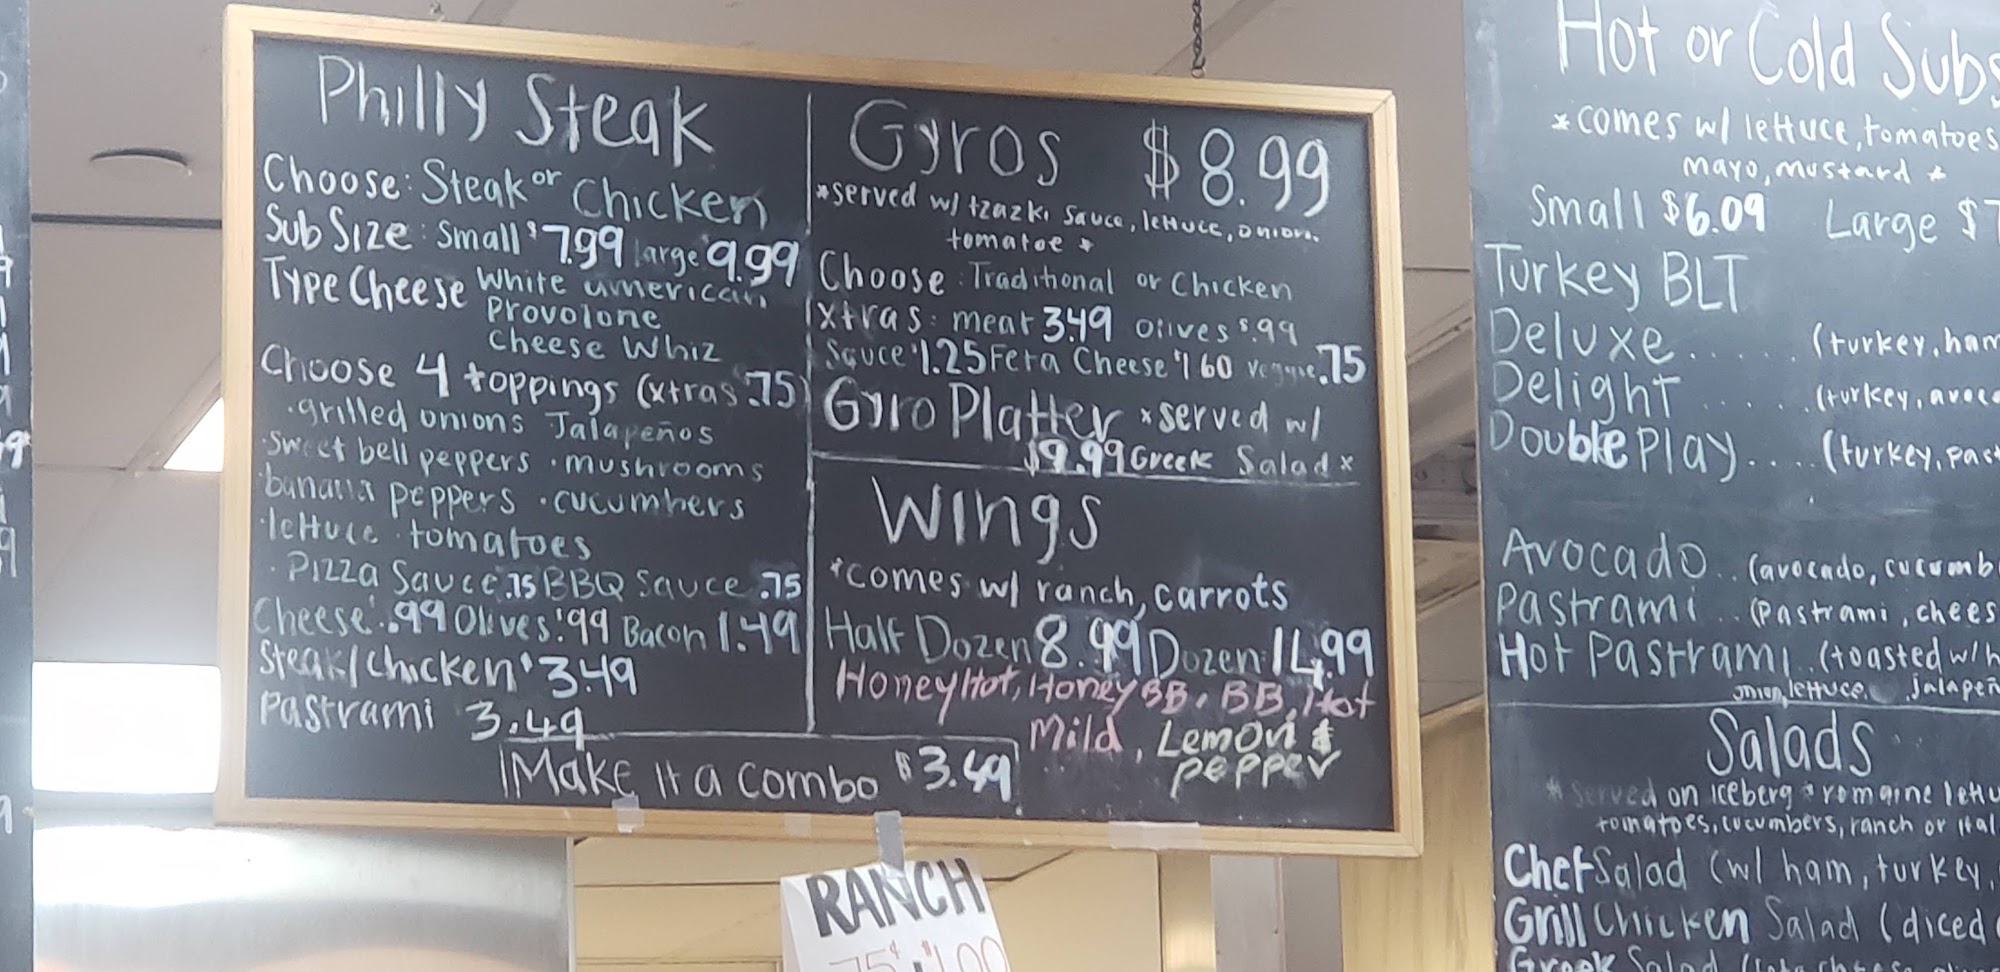 Philly Steak
Choose: Steak or Chicken
Sub Size: Small $7.99 large 9.99
Type Cheese White american
Provolone
Cheese Whiz
Choose 4 toppings (xtras .75)
·grilled onions Jalapeños
·sweet bell peppers ·mushrooms
·banana peppers ·cucumbers
·lettuce ·tomatoes
·Pizza Sauce .75 BBQ Sauce .75
Cheese .99 Olives .99 Bacon 1.49
Steak/Chicken $3.49
Pastrami 3.49
Make It a Combo $3.49
Gyros $8.99
*served w/ tzazki Sauce, lettuce, onion,
tomatoe *
Choose: Traditional or Chicken
Xtras: meat 3.49 Olives $.99
Sauce $1.25 Feta Cheese $1.60 veggie .75
Gyro Platter *served w/
$9.99 Greek Salad *
Wings
*comes w/ ranch, carrots
Half Dozen 8.99 Dozen 14.99
Honey Hot, Honey BB, BB, Hot
Mild, Lemon &
pepper
RANCH
75¢ $1.00
Hot or Cold Subs
*comes w/ lettuce, tomatoes
mayo, mustard *
Small $6.09 Large $7
Turkey BLT
Deluxe...... (turkey, ham
Delight...... (turkey, avoc
Double Play.... (turkey, past
Avocado.. (avocado, cucumb
Pastrami.. (Pastrami, chees
Hot Pastrami.. (toasted w/h
onion, lettuce, jalapeñ
Salads
*served on iceberg & romaine lettu
tomatoes, cucumbers, ranch or ital
Chef Salad (w/ ham, turkey,
Grill Chicken Salad (diced
Greek Salad